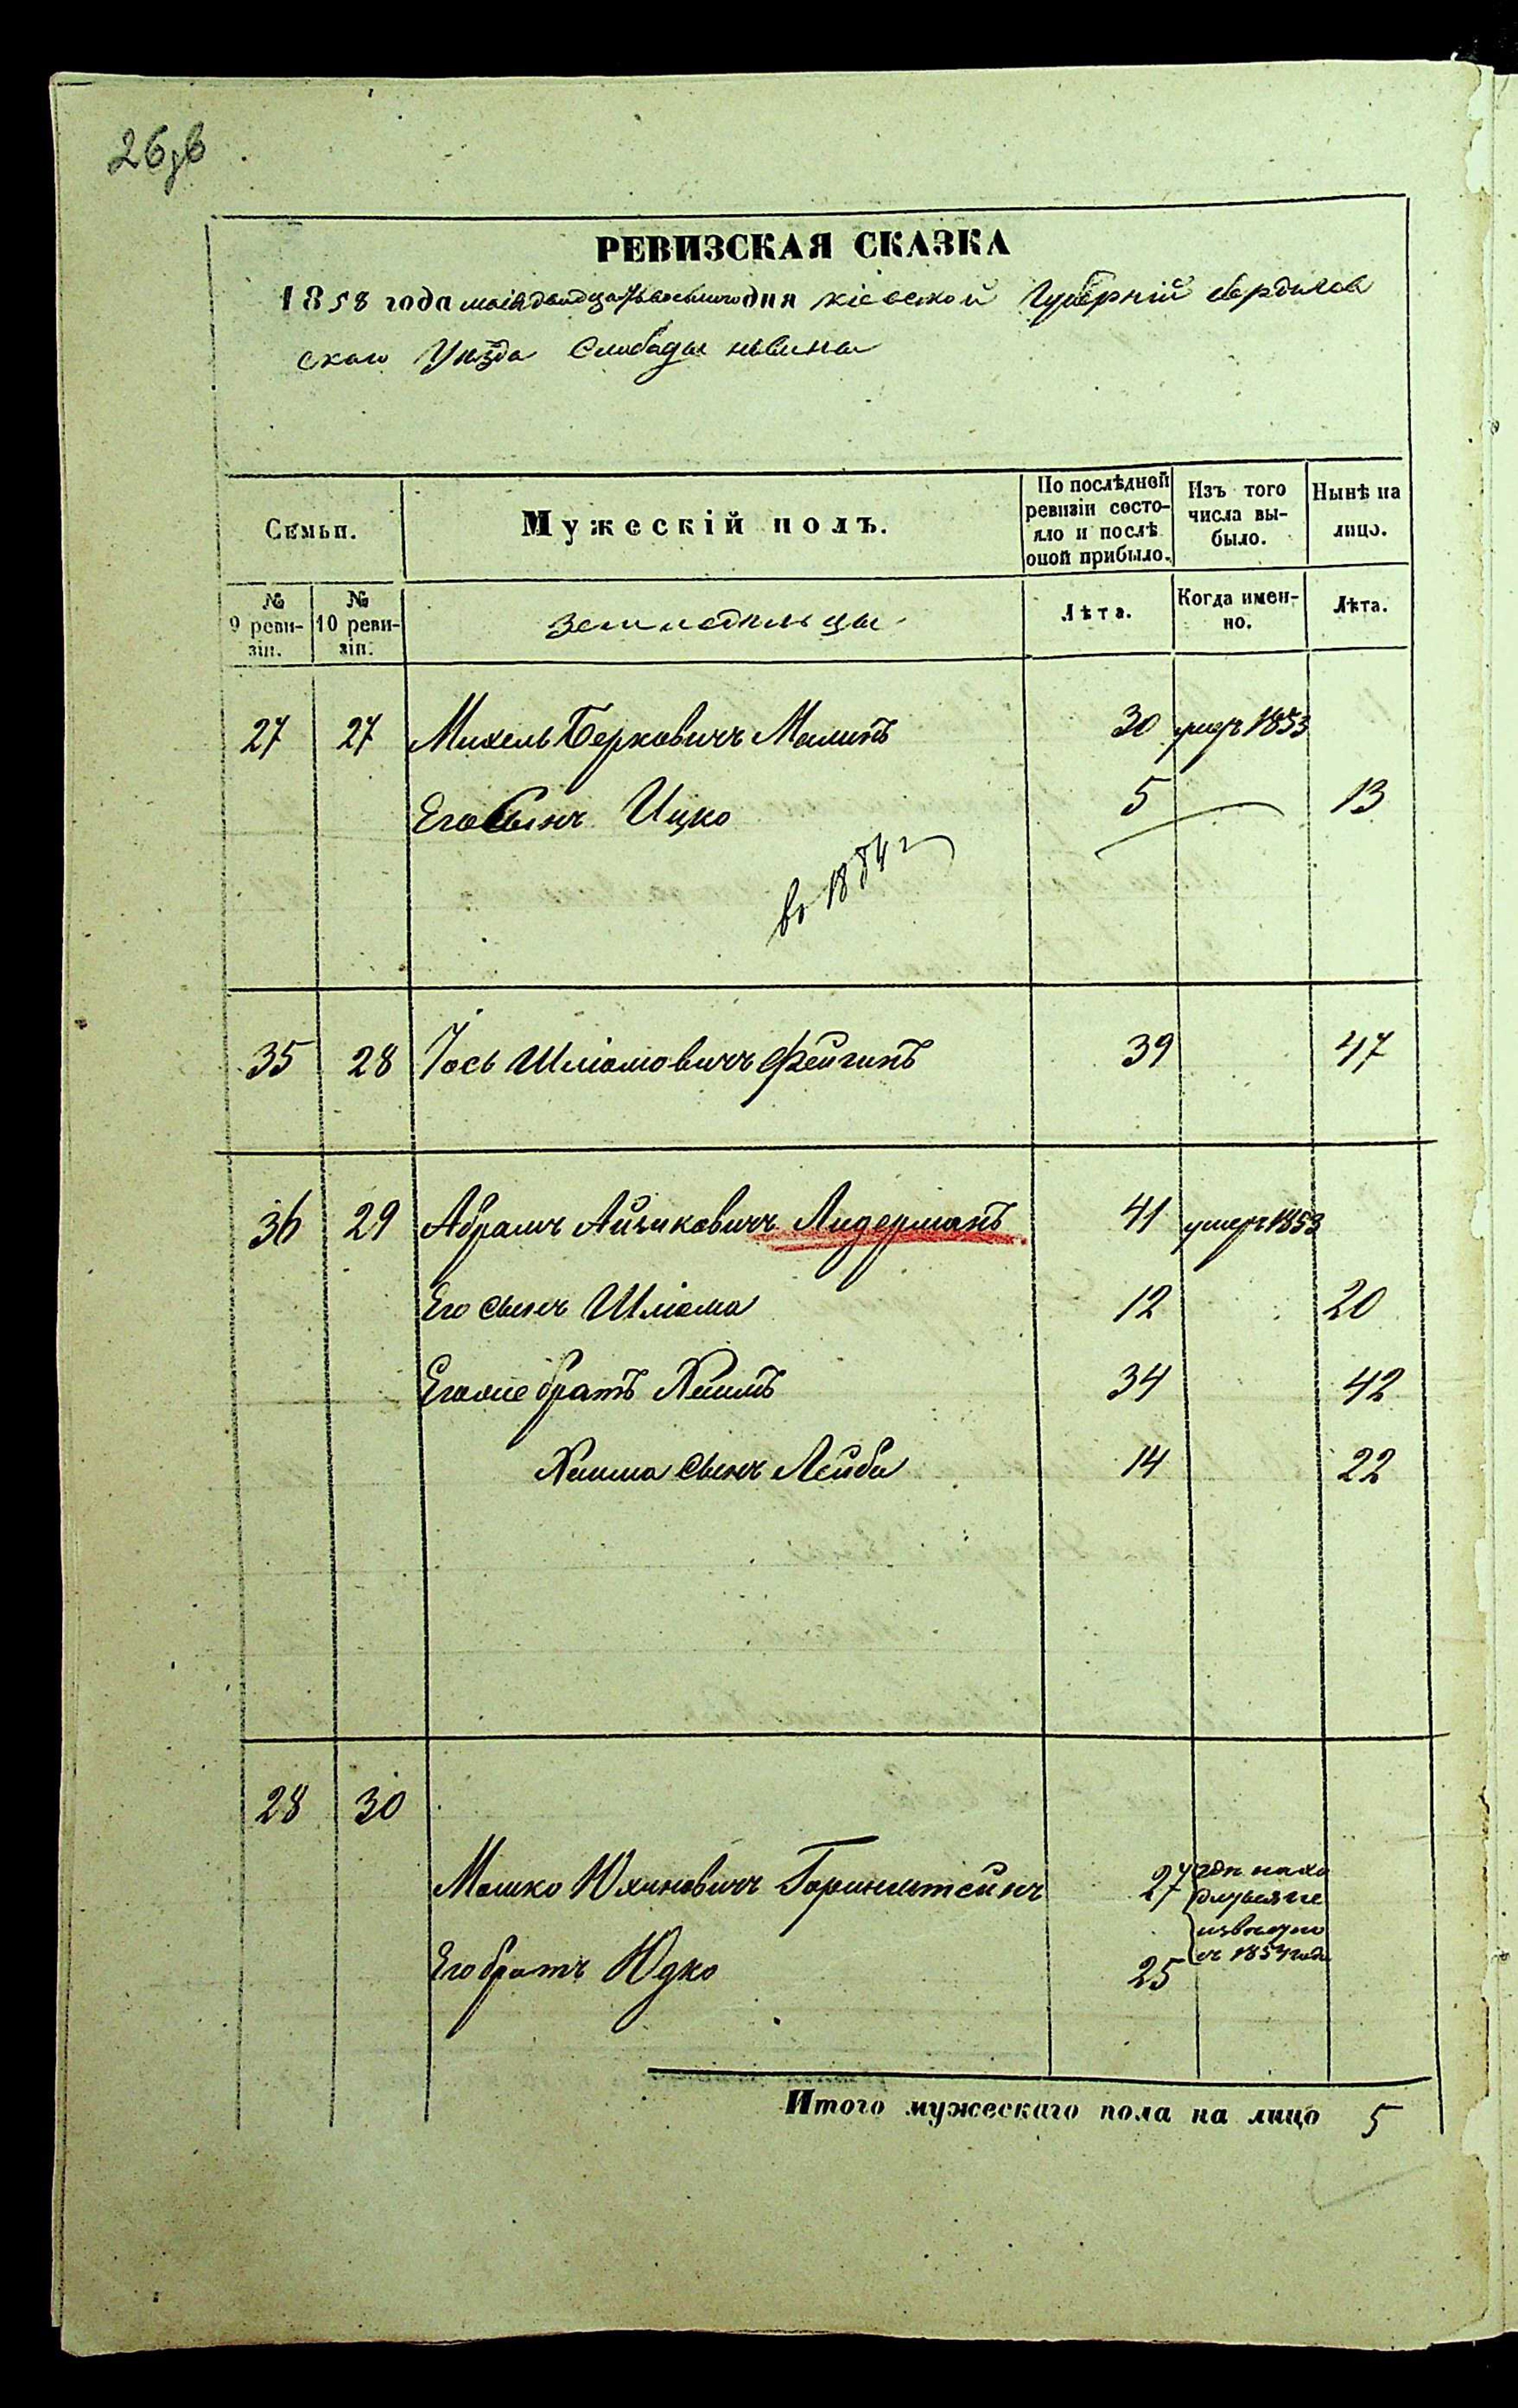 26об
РЕВИЗСКАЯ СКАЗКА
1858 года маія двадцать восьмого дня кіевской Губерній бердичев
скаго Уѣзда Слободы
Семьи.
Мужескій полъ.
По послѣдней ревизіи состояло и послѣ оной прибыло.
Изъ того числа выбыло.
Нынѣ на лицо.
№ 9 ревизіи.
№ 10 ревизіи.
земледѣльцы
Лѣта.
Когда именно.
Лѣта.
27 27 Михель Берковичъ Малинъ 30 умеръ 1853
Его Сынъ Ицко 5 13
въ 1884 г
35 28 Іось Шліомовичъ Фейгинъ 39 47
36 29 Абрамъ Айзиковичъ Лидерманъ 41 умеръ 1853
Его сынъ Шліома 12 20
Егоже братъ Хаимъ 34 42
Хаима сынъ Лейба 14 22
28 30
Мошко Юхиновичъ Горинштейнъ 27 гдѣ нахо
дятся не
извѣстно
съ 1854 года
Его братъ Юдко 25
Итого мужескаго пола на лицо 5